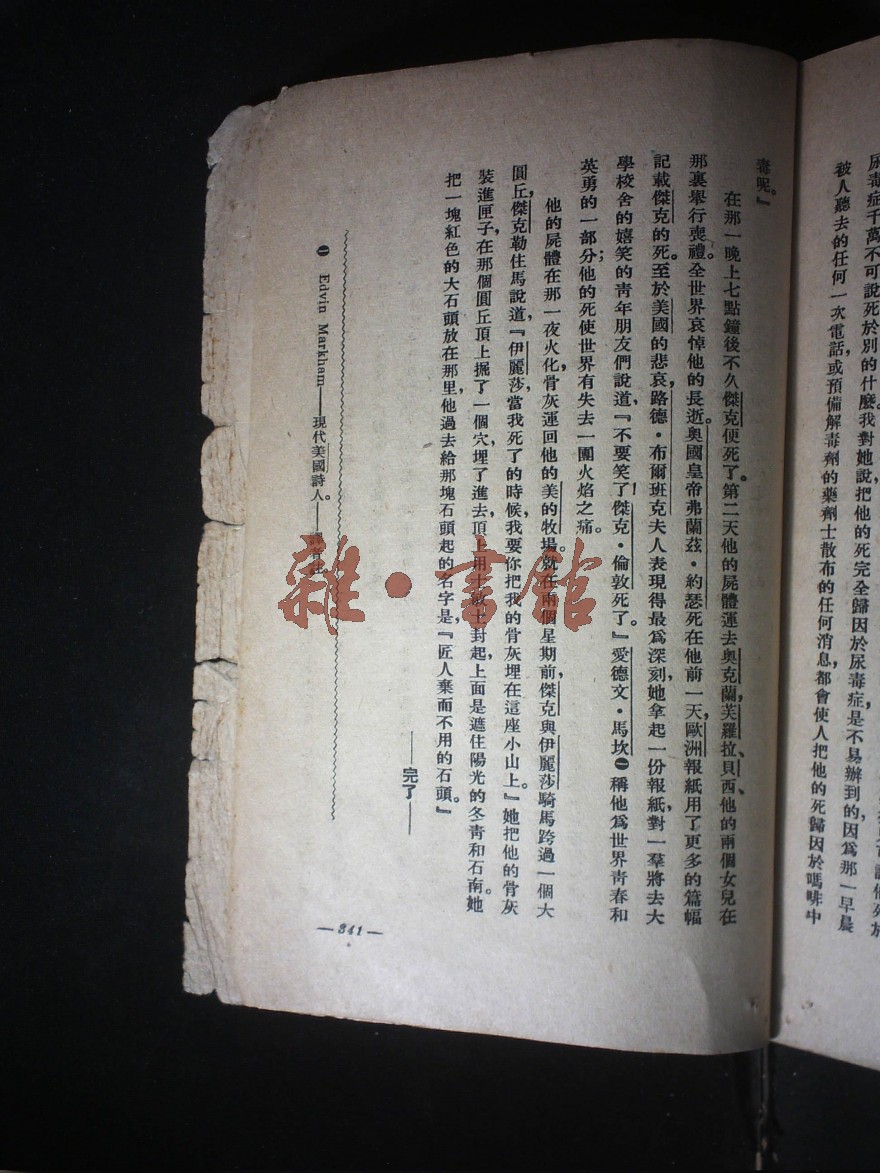 尿毒症千萬不可說死於別的什麼。我對她說把他的死完全歸因於尿毒症是不易辦到的，因爲那一早晨
被人聽去的任何一次電話，或預備解毒劑的藥劑士散布的任何消息，都會使人把他的死歸因於嗎啡中
毒呢。』
在那一晚上七點鐘後不久傑克便死了。第二天他的屍體運去奧克蘭，芙羅拉、貝西、他的兩個女兒在
那裏舉行喪禮。全世界哀悼他的長逝。奧國皇帝弗蘭茲・約瑟死在他前一天，歐洲報紙用了更多的篇幅
記載傑克的死。至於美國的悲哀，路德・布爾班克夫人表現得最爲深刻，她拿起一份報紙，對一羣將去大
學校舍的嬉笑的青年朋友們說道，『不要笑了！傑克・倫敦死了。』愛德文・馬坎㊀稱他爲世界青春和
英勇的一部分；他的死使世界有失去一團火焰之痛。
他的屍體在那一夜火化，骨灰運回他的美的牧場。就在兩個星期前，傑克與伊麗莎騎馬跨過一個大
圓丘，傑克勒住馬說道，『伊麗莎，當我死了的時候，我要你把我的骨灰埋在這座小山上。』她把他的骨灰
裝進匣子，在那個圓丘頂上掘了一個穴，埋了進去，頂上用士敏土封起，上面是遮住陽光的冬青和石南。她
把一塊紅色的大石頭放在那里，他過去給那塊石頭起的名字是，『匠人棄而不用的石頭。』
——完了——
㊀ Edvin Markham——現代美國詩人。——譯者註。
—341—
雜・書館